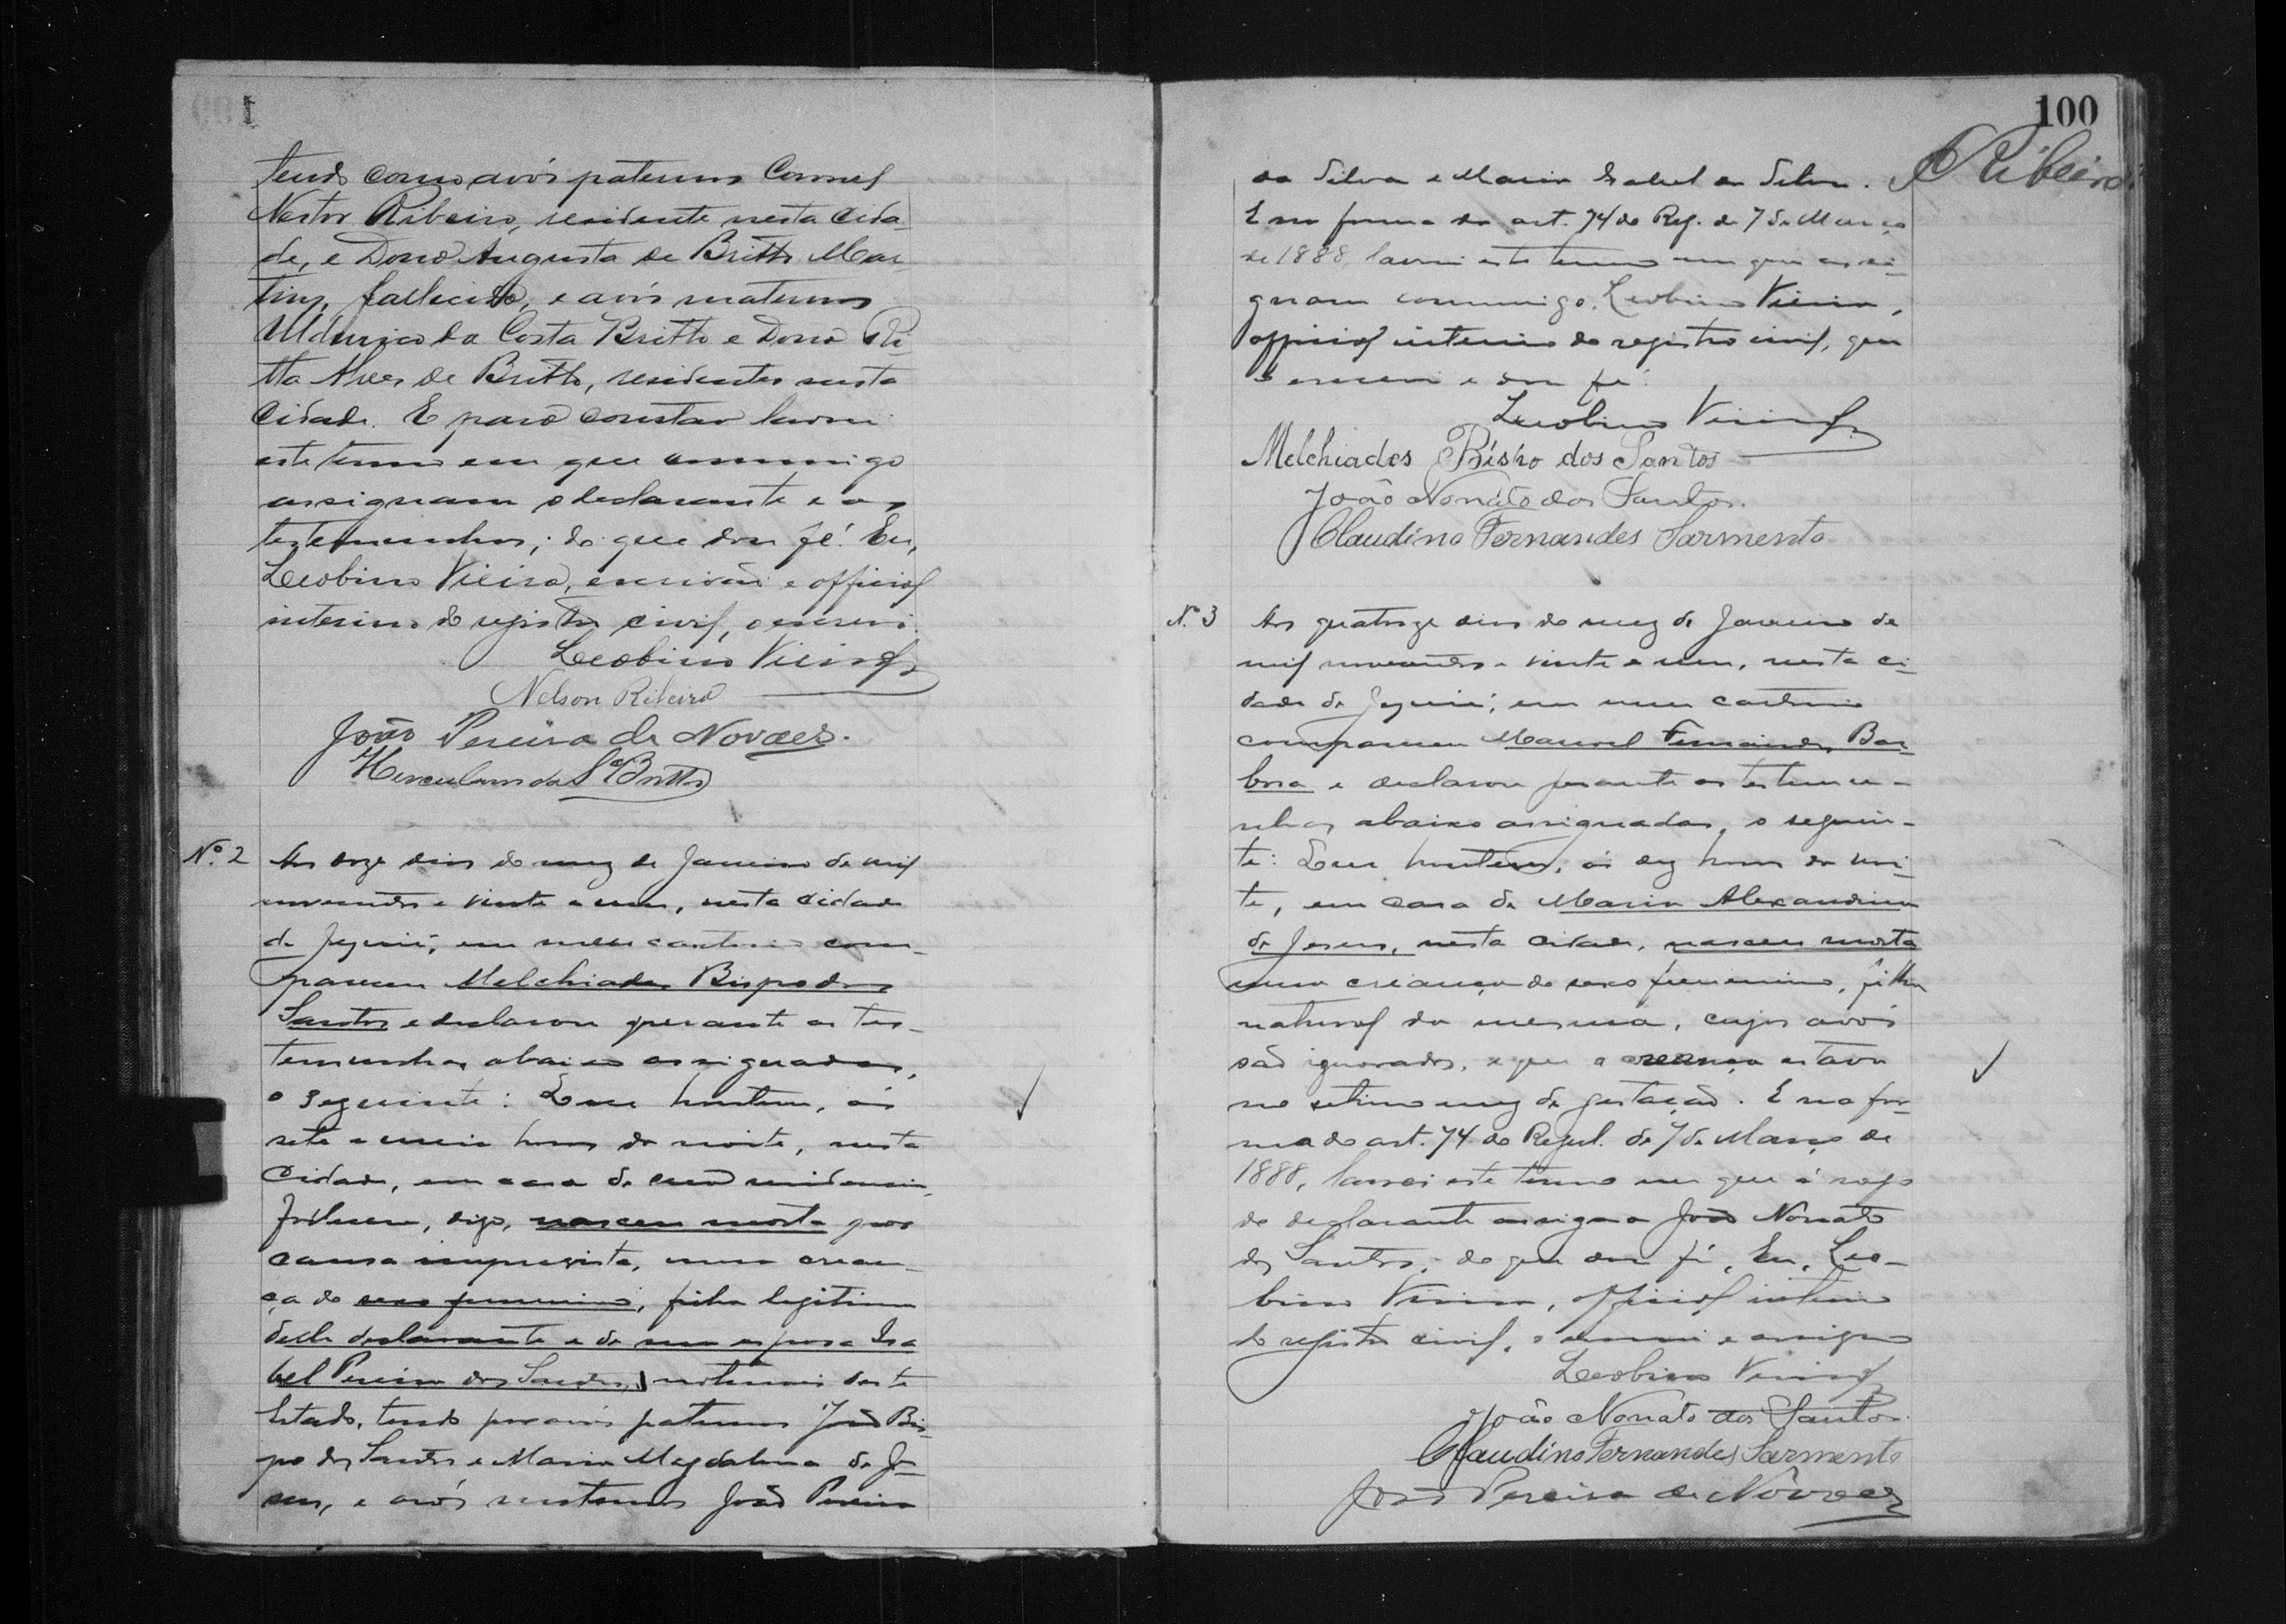 tendo como avós paternos Coronel
Nestor Ribeiro, residente nesta cida-
de, e Dona Augusta de Britto Mar-
tins, fallecida, e avós maternos
da Costa Britto e Dona Ri-
tta Alves de Britto, residentes nesta
cidade. E para constar lavrei
este termo em que commigo
assignam o declarante e as
testemunhas; do que dou fé. Eu,
Leobino Vieira, escrivão e official
interino do registro civil, o escrevi.
Leobino Vieira
Nelson Ribeiro
João Pereira de Novaes.
Herculano da Cª Britto
Nº 2 Aos onze dias do mez de Janeiro de mil
novecentos e vinte e um, nesta cidade
de Jequié, em meu cartorio com-
pareceu Melchiades Bispo dos
Santos e declarou perante as tes-
temunhas abaixo assignadas,
o seguinte: Que hontem, ás
sete e meia horas da noite, nesta
cidade, em casa de sua residencia,
falleceu, digo, nasceu morta por
causa imprevista, uma crean-
ça do sexo femenino, filha legitima
delle declarante e de sua esposa Isa
bel Pereira dos Santos, naturaes deste
Estado, tendo por avós paternos João Bis-
po dos Santos e Maria Magdalena de Je-
sus, e avós maternos João Pereira
100
Ribeiro
da Silva e Maria Isabel da Silva.
E na forma do art. 74 do Reg. de 7 de Março
de 1888, lavrei este termo em que assi-
gnam commigo, Leobino Vieira,
official interino do registro civil, que
o escrevi e dou fé.
Leobino Vieira
Melchiades Bispo dos Santos
João Nonato dos Santos.
Claudino Fernandes Sarmento
Nº 3 Aos quatorze dias do mez de Janeiro de
mil novecentos e vinte e um, nesta ci-
dade de Jequié, em meu cartorio
compareceu Manoel Fernandes Bar-
bosa e declarou perante as testemu-
nhas abaixo assignadas, o seguin-
te: Que hontem, ás dez horas da noi-
te, em casa de Maria Alexandrina
de Jesus, nesta cidade, nasceu morta
uma creança do sexo femenino, filha
natural da mesma, cujos avós
são ignorados, e que a creança estava
no setimo mez de gestação. E na for-
ma do art. 74 do Regul. de 7 de Março de
1888, lavrei este termo em que á rogo
do declarante assigna João Nonato
dos Santos; do que dou fé. Eu, Leo-
bino Vieira, official interino
do registro civil, o escrevi e assigno
Leobino Vieira
João Nonato dos Santos.
Claudino Fernandes Sarmento
João Pereira de Novaes